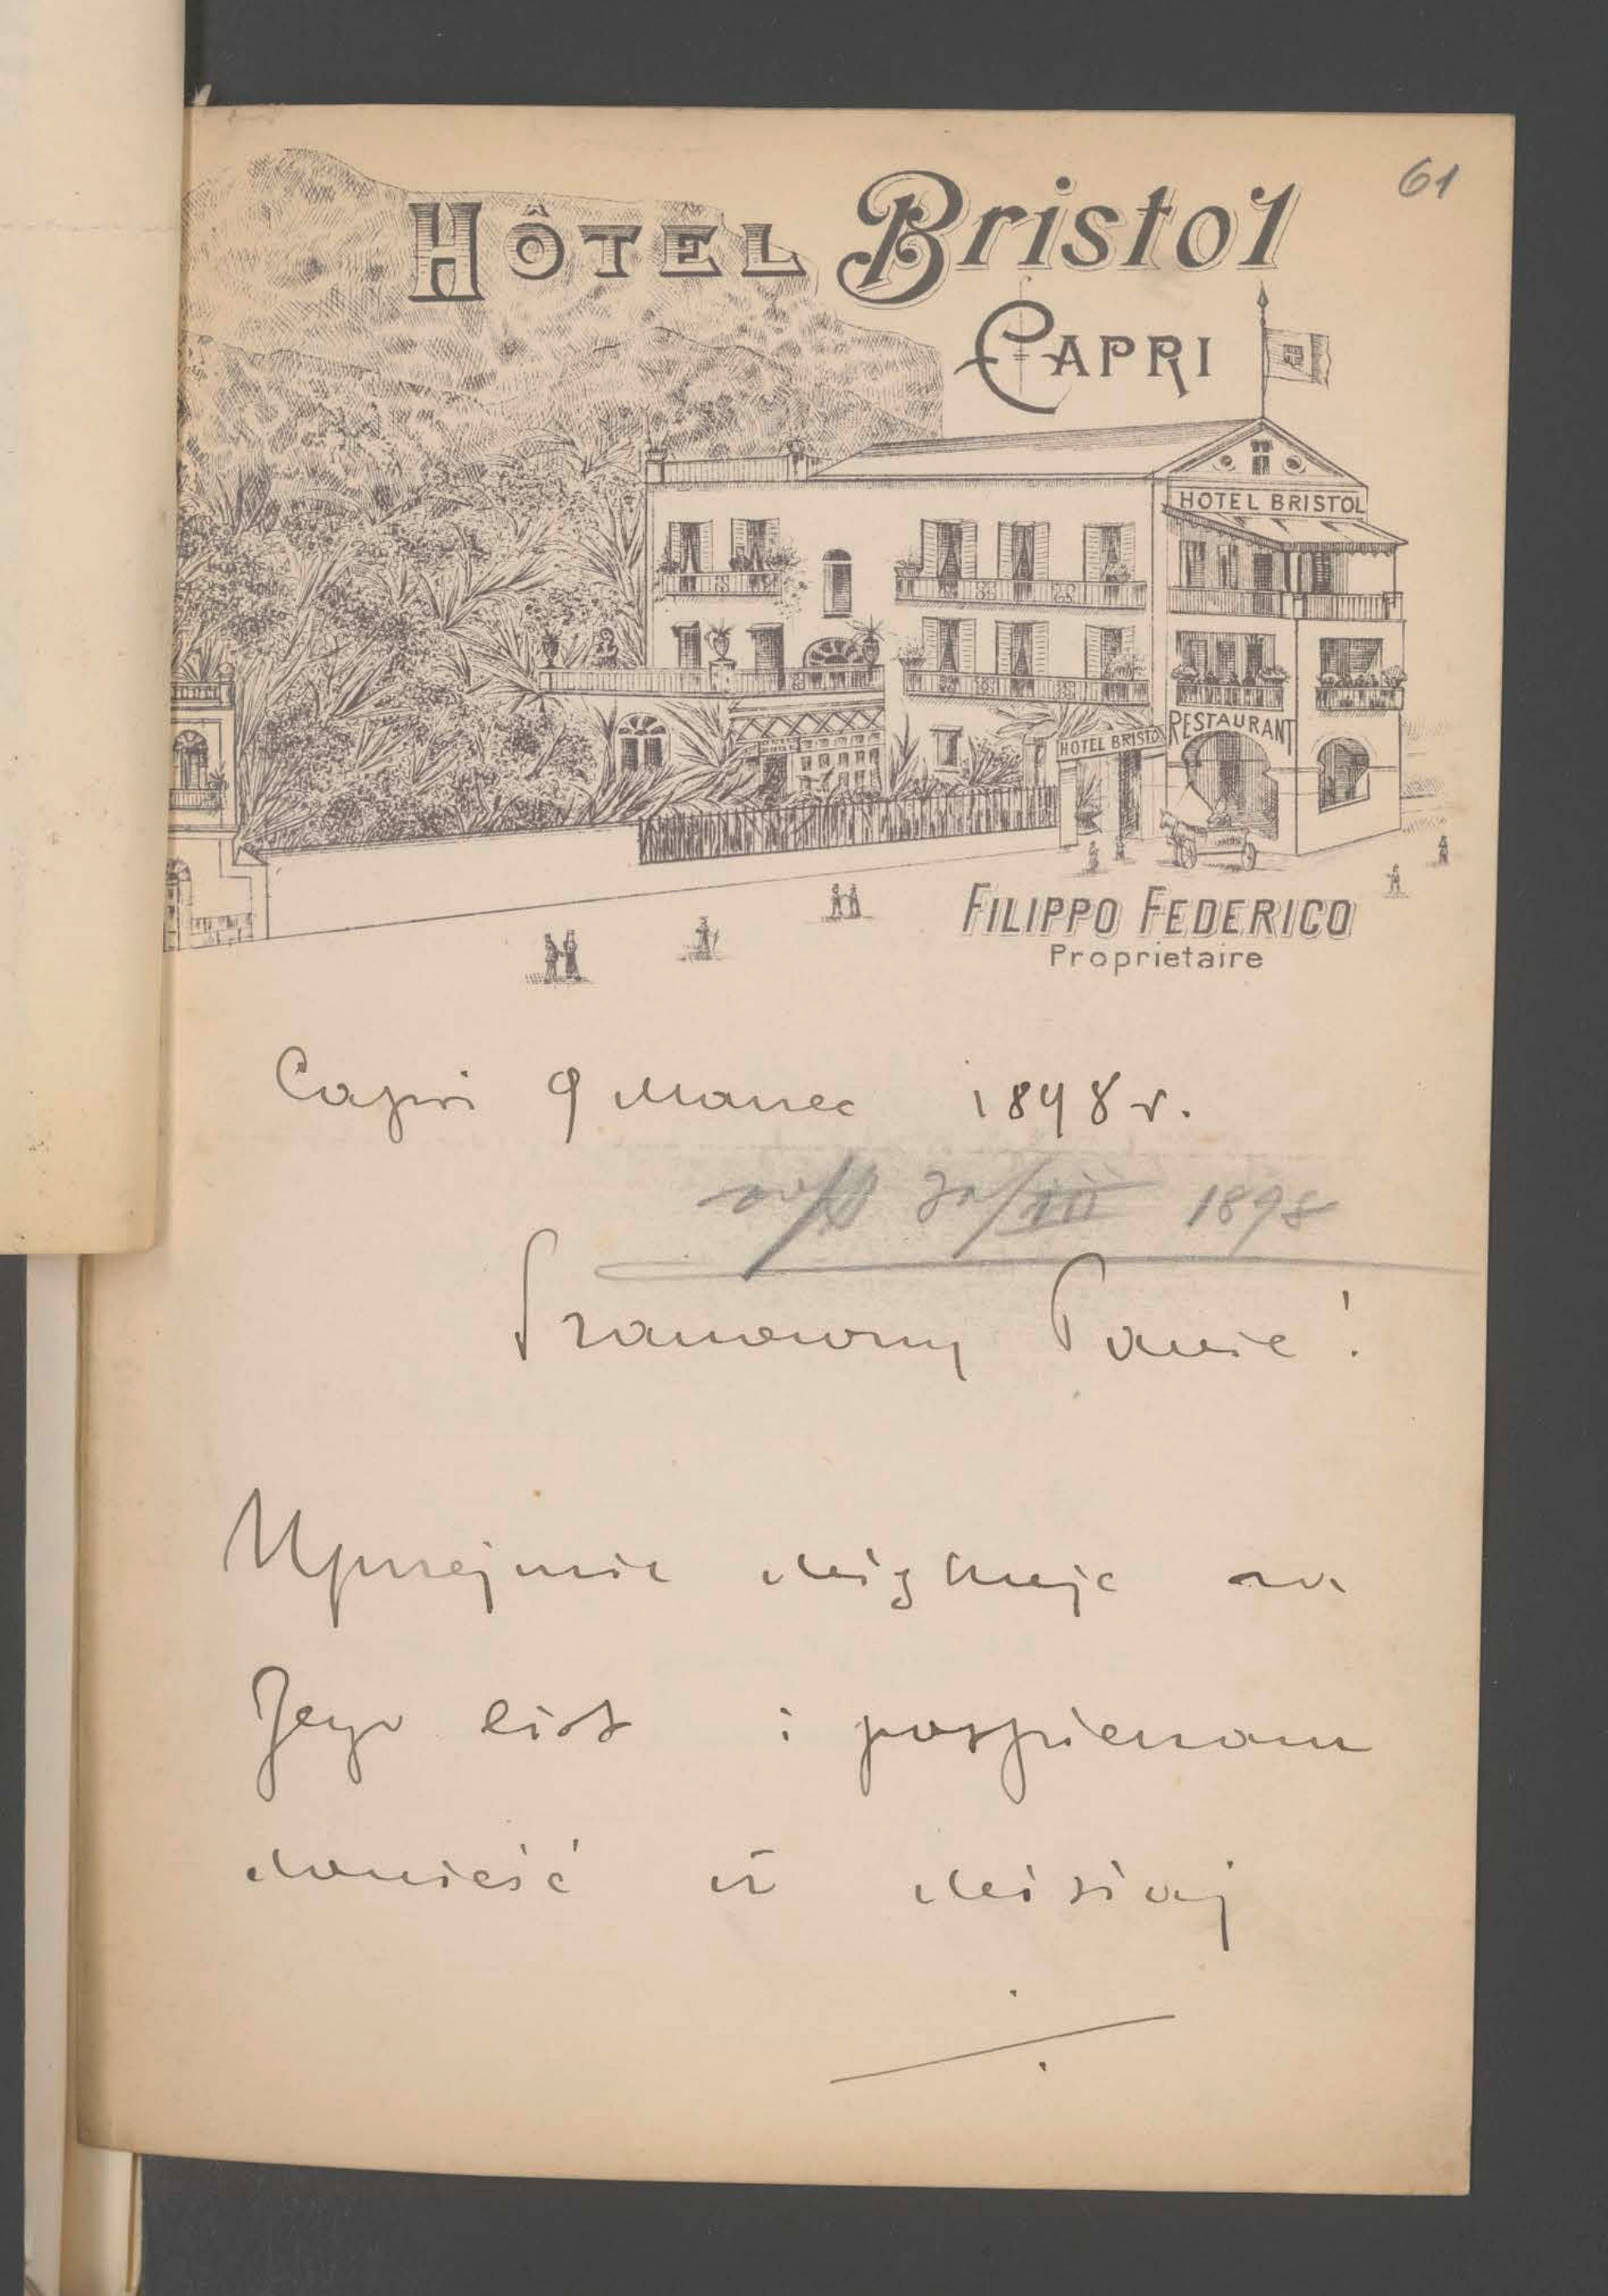 61
HÔTEL Bristol
CAPRI
HOTEL BRISTOL
RESTAURANT
HOTEL BRISTOL
FILIPPO FEDERICO
Proprietaire
Capri 9 Marzec 1898 r.
1898
Szanowny Panie!
Uprzejmie dziękuję za
Jego list i pospieszam
donieść iż dzisiaj